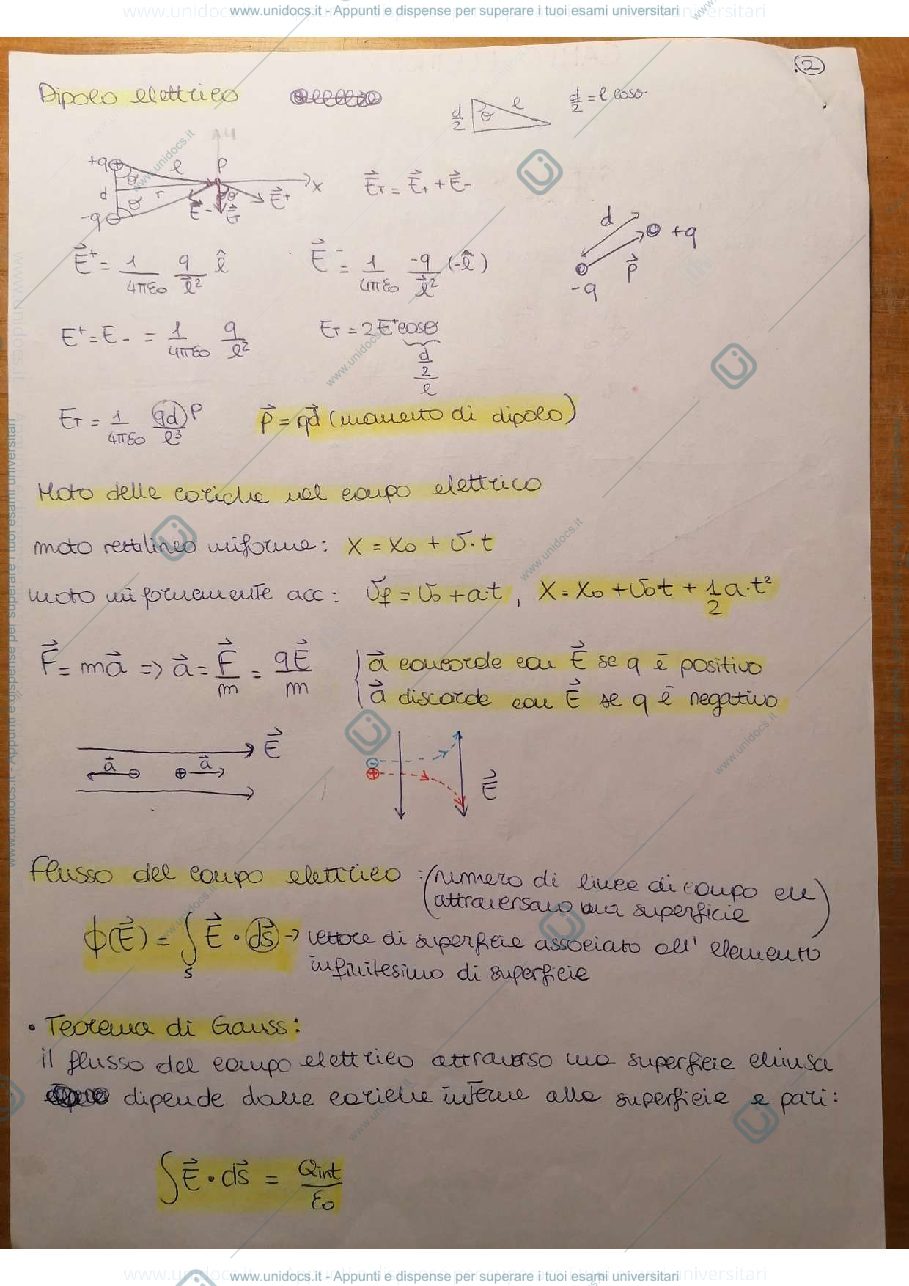 www.unidocs.it - Appunti e dispense per superare i tuoi esami universitari
2
Dipolo elettrico
d/2 θ l
d/2 = l cosθ
+q l P
d θ r x
-q θ E⃗- E⃗T θ E⃗+
E⃗T = E⃗+ + E⃗-
d +q
-q p⃗
E⃗+ = 1/4πε0 q/l⃗² l̂
E⃗- = 1/4πε0 -q/l⃗² (-l̂)
E+ = E- = 1/4πε0 q/l²
ET = 2E+ cosθ
d/2/l
ET = 1/4πε0 qd/l³ P
p⃗ = qd⃗ (momento di dipolo)
Moto delle cariche nel campo elettrico
moto rettilineo uniforme: x = x0 + v·t
moto uniformemente acc: vf = v0 + a·t , x = x0 + v0t + 1/2 a·t²
F⃗ = ma⃗ => a⃗ = F⃗/m = qE⃗/m
{ a⃗ concorde con E⃗ se q è positivo
a⃗ discorde con E⃗ se q è negativo
a⃗ ⊖ ⊕ a⃗ E⃗
⊖ ⊕ E⃗
Flusso del campo elettrico : (numero di linee di campo che
attraversano una superficie)
ϕ(E⃗) = ∫s E⃗ · ds⃗ → vettore di superficie associato all' elemento
infinitesimo di superficie
• Teorema di Gauss:
il flusso del campo elettrico attraverso una superficie chiusa
dipende dalle cariche interne alla superficie e pari:
∫ E⃗ · ds⃗ = Qint/ε0
www.unidocs.it - Appunti e dispense per superare i tuoi esami universitari